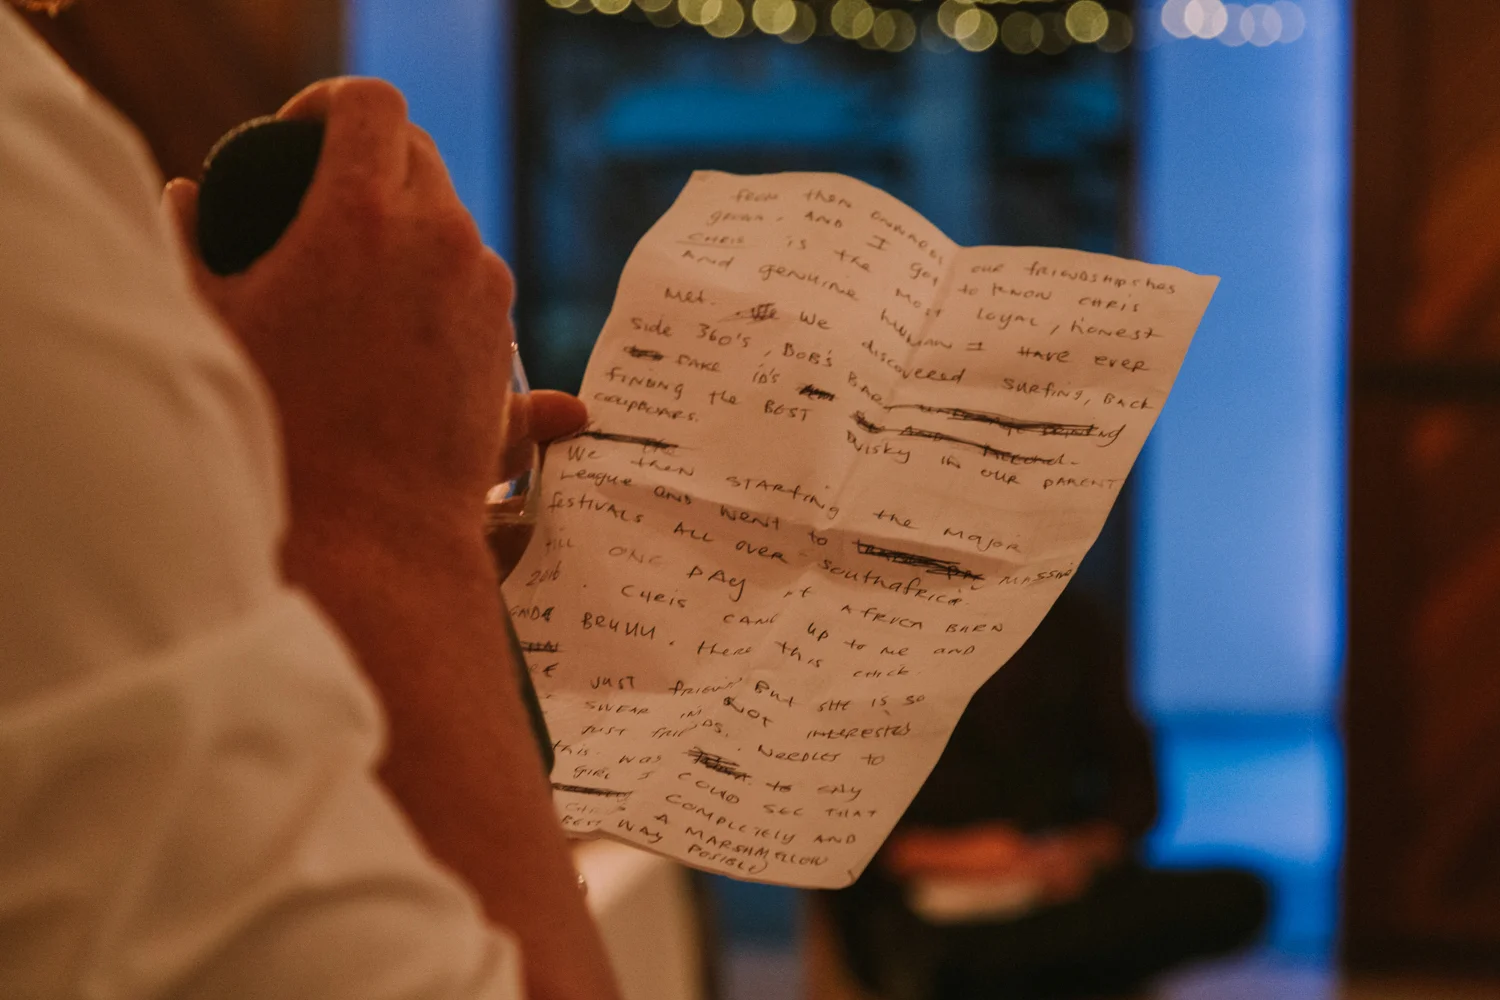 from then onwards our friendship has
grown. AND I got to know CHRIS
CHRIS is the most loyal, honest
And genuine human I have ever
met. We discovered surfing, Back
side 360's, BOB'S BAR,
FAKE ID'S
FINDING the BEST Wisky in our PARENT
cupboards.
We then STARting the major
League and went to massive
festivals ALL over southafrica.
till ONE DAY at AFRICA BURN
2016. CHRIS came up to me and
BRUHH. there this chick
JUST friends But SHE IS SO
SWEAR NOT INTERESTED
JUST friends. NEEDLES to
this was to say
GIRL I COUD SEE THAT
COMPLETELY AND
A MARSHMELLOW
BEST WAY POSIBLE)